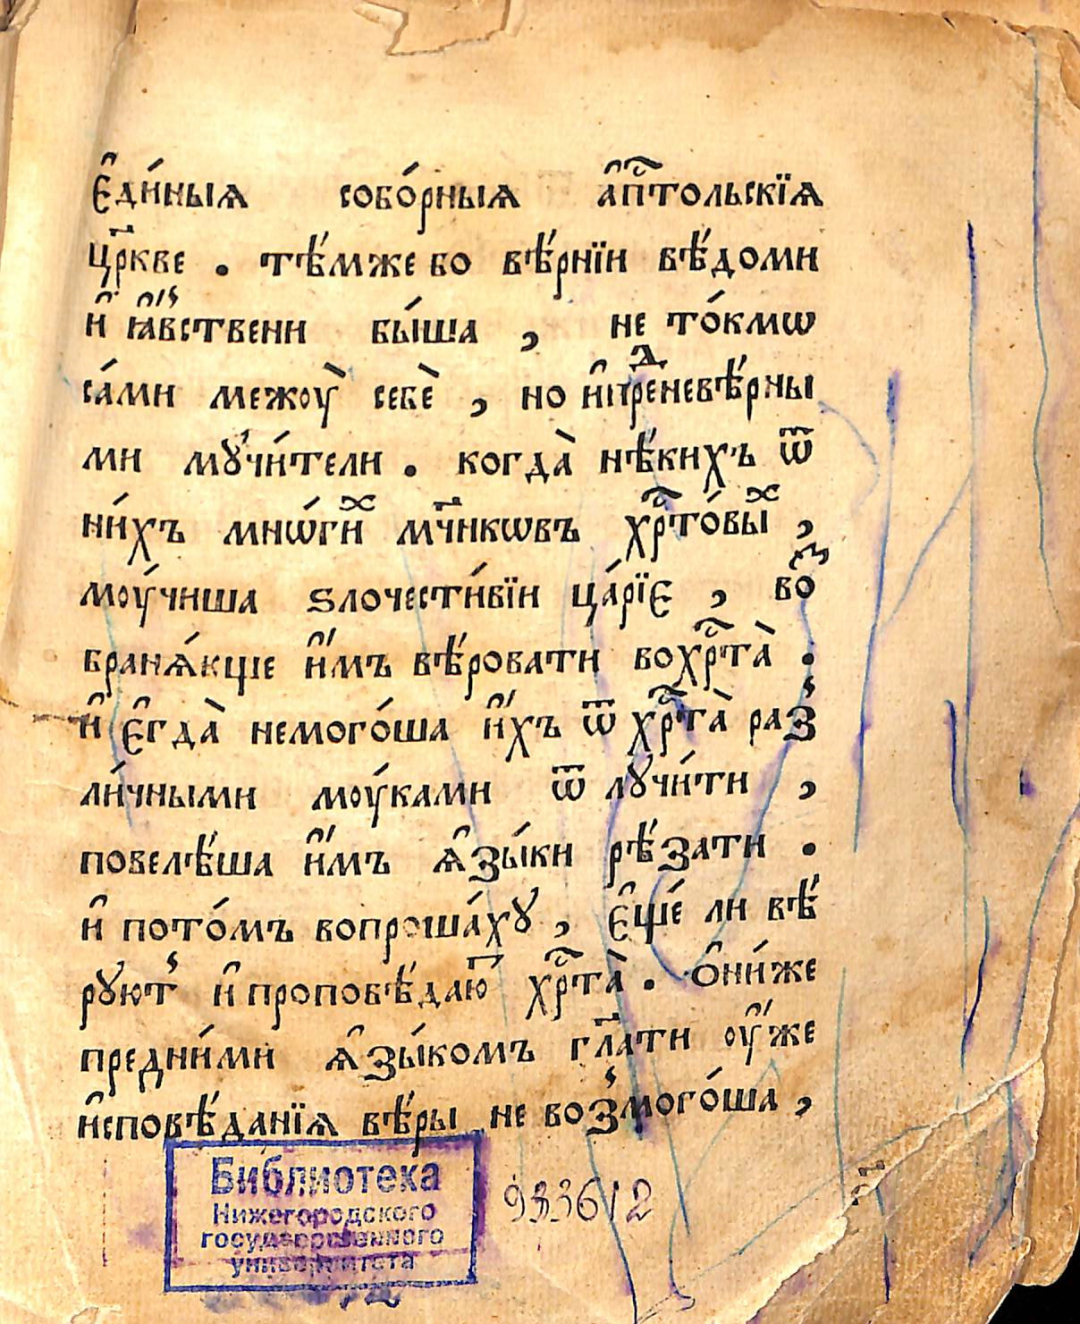 Є҆ди́ныѧ собо́рныѧ а҆пⷭ҇тольскїѧ
цр҃кве . тѣ́мже бо вѣ́рнїи вѣ́доми
и҆ ꙗ҆́вствени бы́ша , не то́кмѡ
са́ми межоу̀ себѐ , но и҆преⷣневѣ́рны
ми мꙋчи́тели . когда̀ нѣ́кихъ ѿ
ни́хъ мнѡ́гиⷯ мч҃никѡвъ хрⷭ҇то́выⷯ ,
моу́чиша ѕлочести́вїи ца́рїє , воⷥ
бранѧ́юще и҆̀мъ вѣ́ровати вохрⷭ҇та̀ .
и҆ є҆гда̀ немого́ша и҆́хъ ѿ хрⷭ҇та̀ раз̾
ли́чными моу́ками ѿ лꙋчи́ти ,
повелѣ́ша и҆́мъ ѧ҆зы́ки рѣ́зати .
и҆ пото́мъ вопроша́хꙋ , є҆ще́ ли вѣ́
рꙋют̾ и҆ проповѣ́даюⷮ хрⷭ҇та̀ . Ѻ҆ни́же
предни́ми ѧ҆зы́комъ гл҃ати оу҆́же
и҆сповѣ́данїѧ вѣ́ры не воз̾мого́ша ,
Библиотека
Нижегородского
государственного
университета
933612